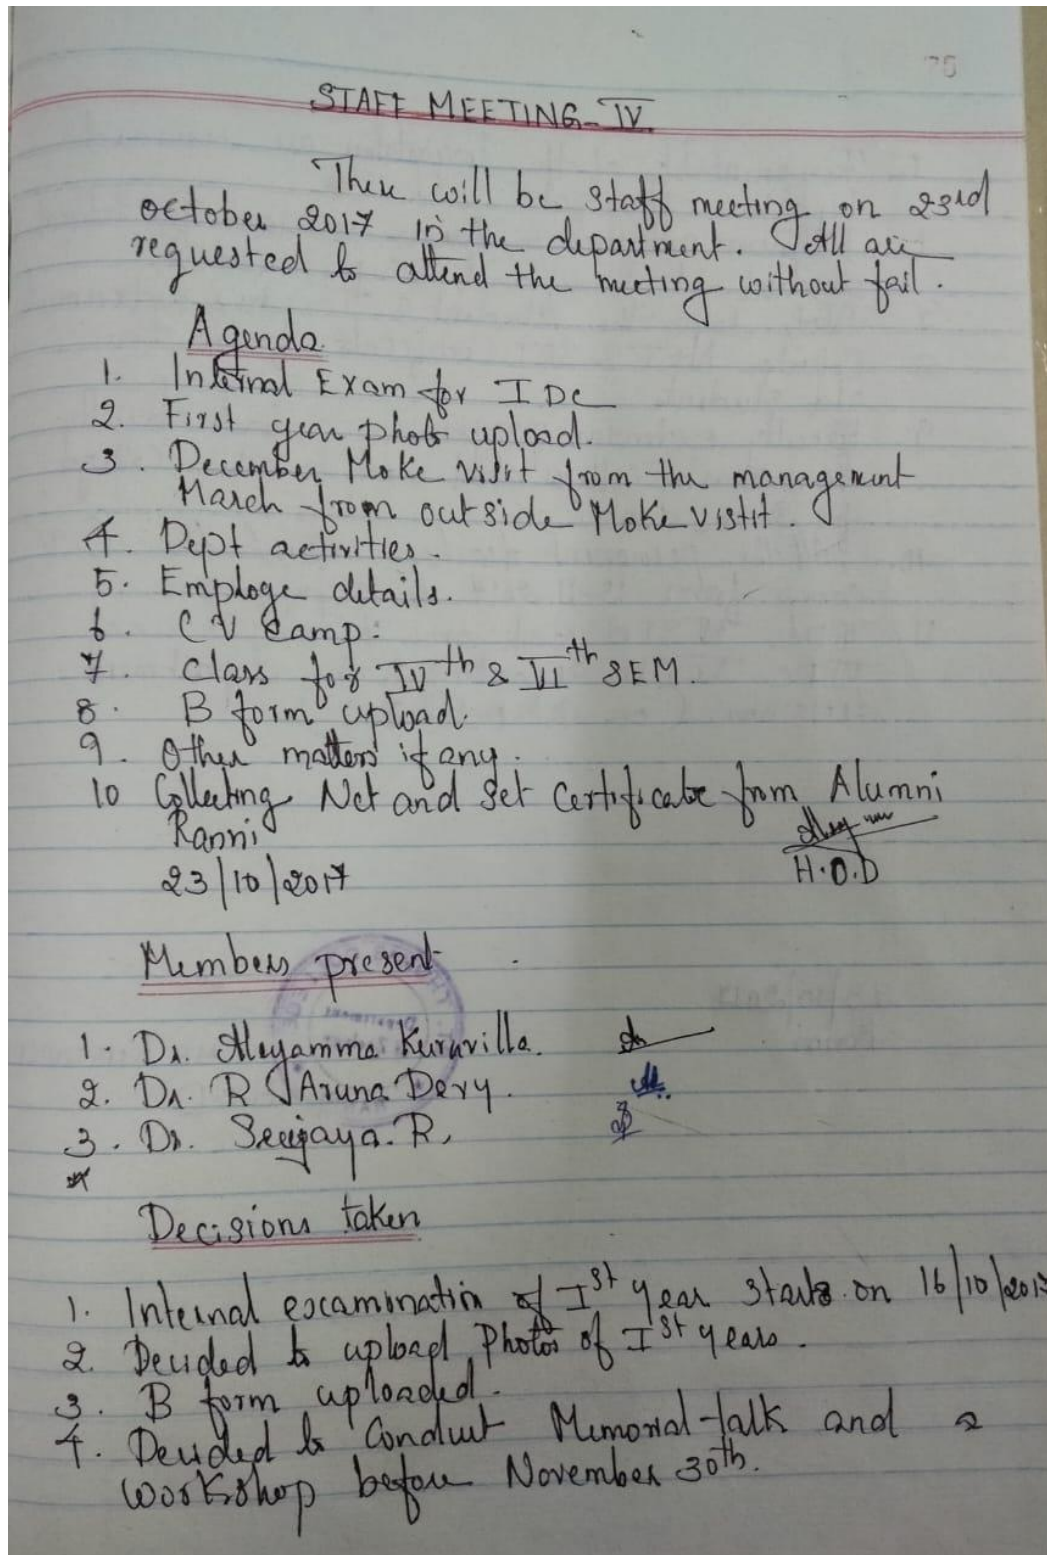 STAFF MEETING - IV.
There will be staff meeting on 23rd
october 2017 in the department. All are
requested to attend the meeting without fail.
Agenda
1. Internal Exam for I DC
2. First year photo upload.
3. December Moke visit from the management
March from outside Moke vistit.
4. Dept activities.
5. Employe details.
6. CV Camp.
7. Class for IVth & VIth SEM.
8. B form upload.
9. Other matters if any.
10 Collecting Net and Set Certificate from Alumni
Ranni
23/10/2017
H.O.D
Members present
1. Dr. Aleyamma Kuruvilla.
2. Dr. R Aruna Devy.
3. Dr. Sreejaya. R.
Decisions taken
1. Internal examination of Ist year starts on 16/10/2017
2. Decided to upload photos of Ist years.
3. B form uploaded.
4. Decided to Conduct Memorial talk and a
workshop before November 30th.